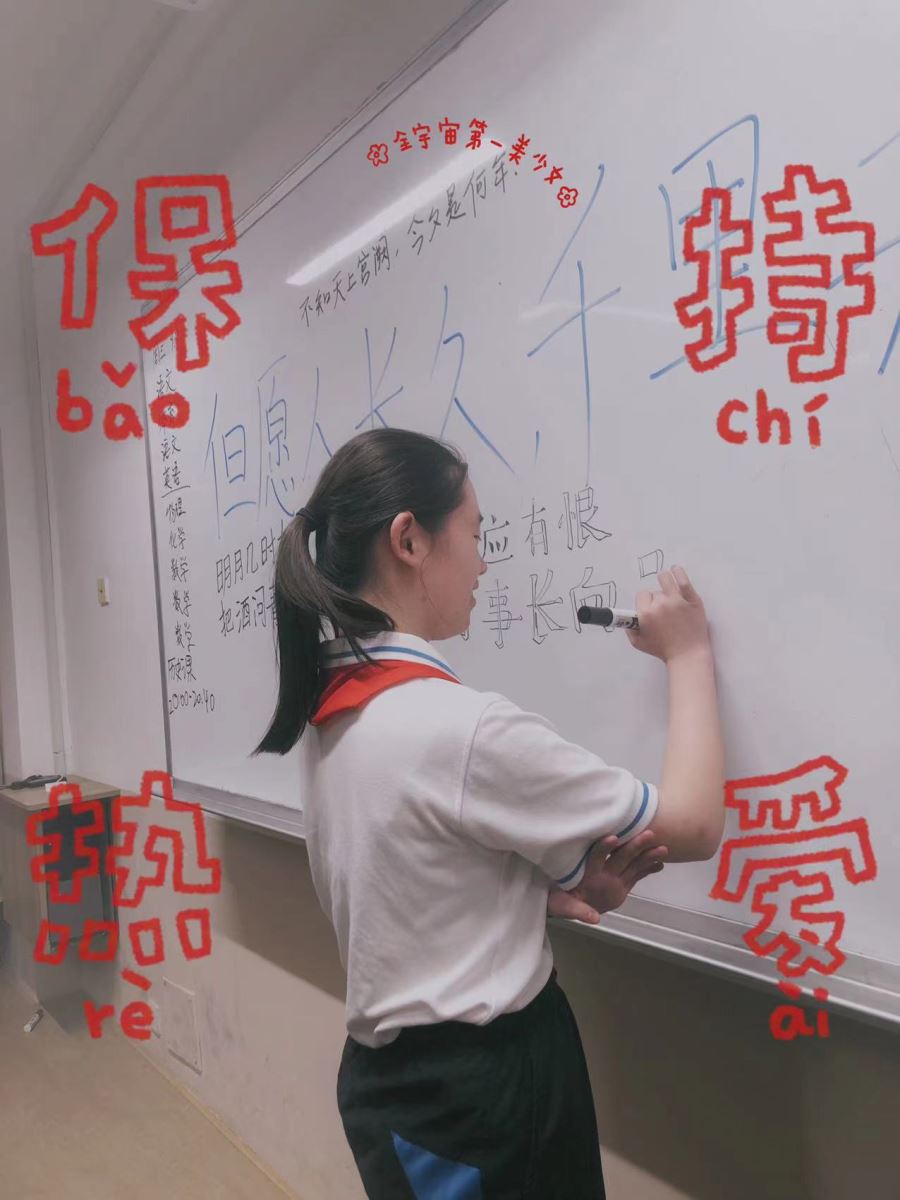 全宇宙第一美少女
保持
bǎo chí
不知天上宫阙，今夕是何年.
但愿人长久，千里
明月几时
把酒问青
应有恨
事长向
语文
语文
英语
物理
化学
数学
数学
数学
历史课
20:00-20:40
热爱
rè ài